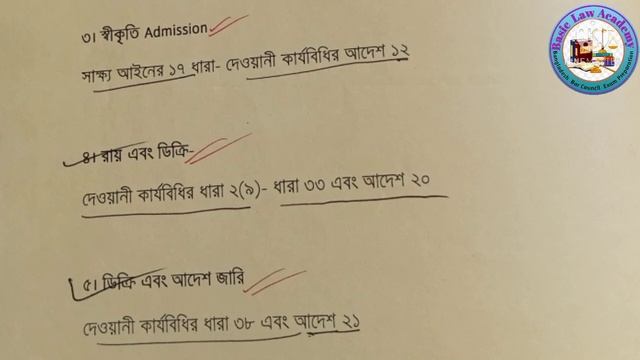 ৩। স্বীকৃতি Admission
সাক্ষ্য আইনের ১৭ ধারা- দেওয়ানী কার্যবিধির আদেশ ১২
৪। রায় এবং ডিক্রি-
দেওয়ানী কার্যবিধির ধারা ২(৯)- ধারা ৩৩ এবং আদেশ ২০
৫। ডিক্রি এবং আদেশ জারি
দেওয়ানী কার্যবিধির ধারা ৩৮ এবং আদেশ ২১
Basic Law Academy
Bangladesh Bar Council Exam Preparation